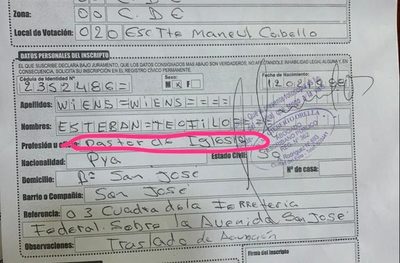 Zona: 00 C.D.E
Local de Votación: 020 Esc Tte Manuel Cabello
DATOS PERSONALES DEL INSCRIPTO
EL QUE SUSCRIBE DECLARA BAJO JURAMENTO, QUE LOS DATOS CONSIGNADOS MAS ABAJO SON VERDADEROS, NO AFECTANDOLE INHABILIDAD LEGAL ALGUNA Y, EN
CONSECUENCIA, SOLICITA SU INSCRIPCIÓN EN EL REGISTRO CÍVICO PERMANENTE.
Cédula de Identidad N° Sexo: Fecha de Nacimiento:
2352486= M X F
Apellidos: WIENS=WIENS====
Nombres: ESTEBAN=TEOFILO
Profesión u Pastor de Iglesia
Nacionalidad: Pya Estado Civil: So
Domicilio: B° San Jose N° de casa:
Barrio o Compañía: San Jose
Referencia: 03 Cuadra de la Ferreteria
Federal. Sobre la Avenida San Jose
Observaciones: Traslado de Asunción
Firma del inscripto